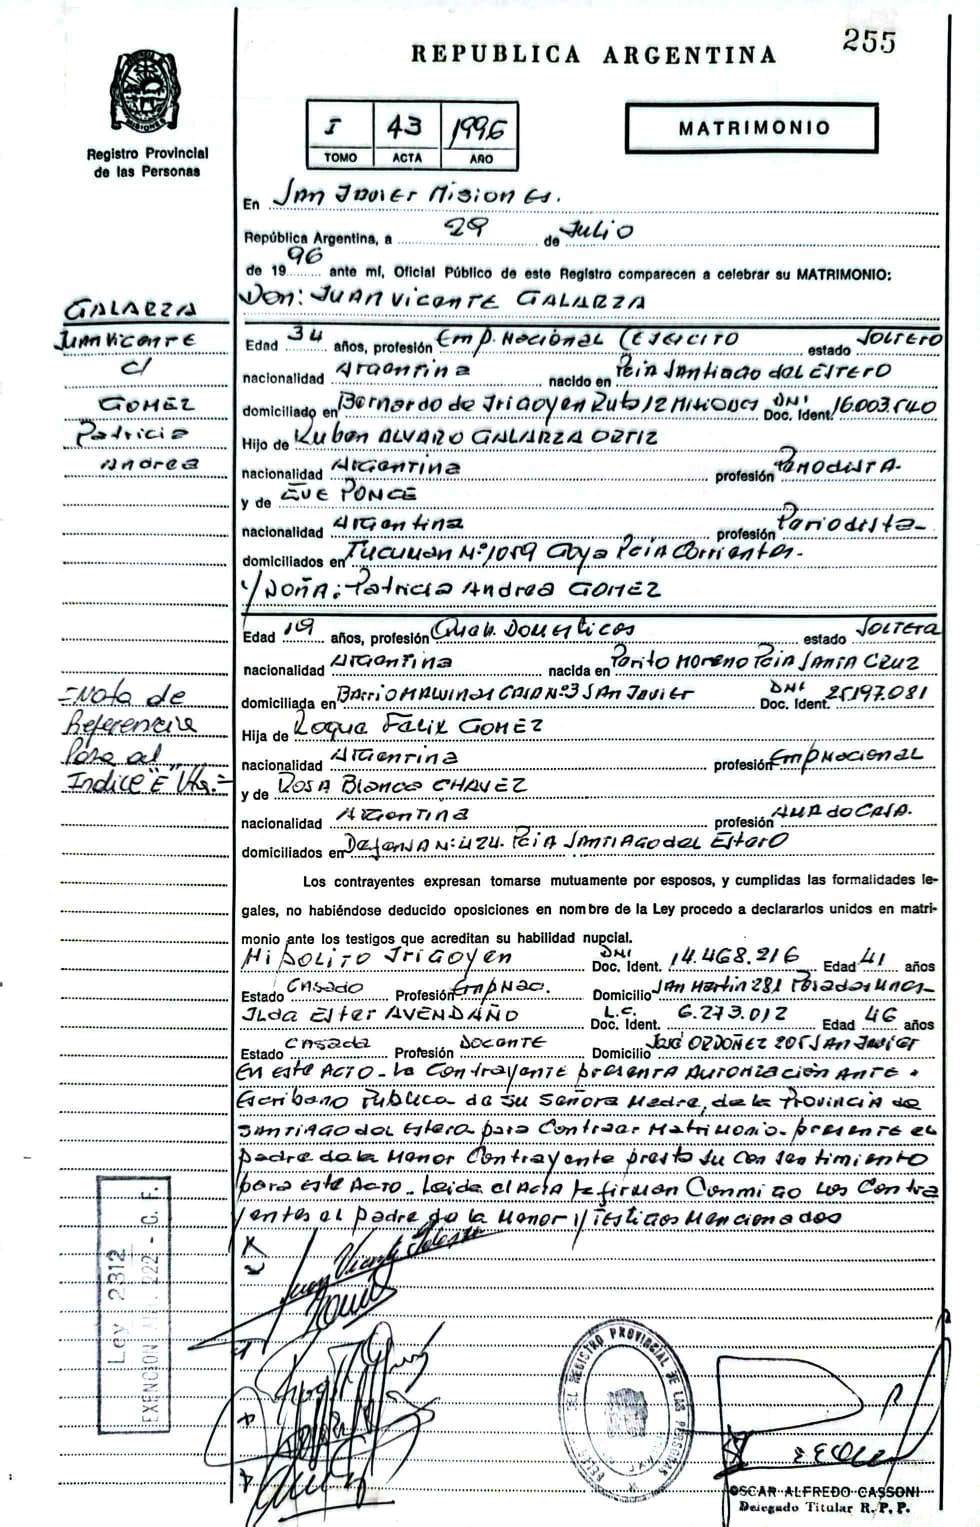 255
REPUBLICA ARGENTINA
MISIONES
Registro Provincial
de las Personas
I 43 1996
TOMO ACTA AÑO
MATRIMONIO
En San Javier Misiones.
República Argentina, a 29 de Julio
de 1996 ante mí, Oficial Público de este Registro comparecen a celebrar su MATRIMONIO:
Don: Juan Vicente GALARZA
GALARZA
Juan Vicente
c/
GOMEZ
Patricia
Andrea
Edad 34 años, profesión Emp. Nacional (Ejercito estado Soltero
nacionalidad Argentina nacido en Pcia Santiago del Estero
domiciliado en Bernardo de Irigoyen Ruta 12 Misiones DNI Doc. Ident. 16.003.540
Hijo de Ruben ALVARO GALARZA ORTIZ
nacionalidad Argentina profesión Periodista-
y de EVE PONCE
nacionalidad Argentina profesión Periodista-
domiciliados en Tucuman Nº 1059 Goya Pcia Corrientes-
y DOÑA: Patricia Andrea GOMEZ
Edad 19 años, profesión Queh. Domesticos estado Soltera
nacionalidad Argentina nacida en Perito Moreno Pcia Santa Cruz
domiciliada en Barrio Malvinas Casa Nº3 San Javier DNI Doc. Ident. 25197.081
Hija de Roque Felix GOMEZ
nacionalidad Argentina profesión Emp Nacional
y de ROSA Blanca CHAVEZ
nacionalidad Argentina profesión Ama de Casa.
domiciliados en Defensa Nº: 424. Pcia Santiago del Estero
=Nota de
Referencia
Para el
Indice "E" Vta.=
Los contrayentes expresan tomarse mutuamente por esposos, y cumplidas las formalidades le-
gales, no habiéndose deducido oposiciones en nombre de la Ley procedo a declararlos unidos en matri-
monio ante los testigos que acreditan su habilidad nupcial.
Hipolito Irigoyen DNI Doc. Ident. 14.468.216 Edad 41 años
Estado Casado Profesión Emp Nac. Domicilio San Martin 281 Posadas Mnes-
Ilda Ester AVENDAÑO L.C. Doc. Ident. 6.273.012 Edad 46 años
Estado Casada Profesión Docente Domicilio José ORDOÑEZ 205 San Javier
En este Acto- la Contrayente presenta Autorización Ante
Escribano Publica de su Señora Madre, de la Provincia de
Santiago del Estero para Contraer Matrimonio- presente el
padre de la Menor Contrayente presto su Consentimiento
para este Acto- Leida el Acta la firman Conmigo los Contra
yentes el padre de la Menor y Testigos Mencionados
Juan Vicente
Ley 2312
EXENCION ART. 222 - C. F.
DEL REGISTRO PROVINCIAL DE LAS PERSONAS
OSCAR ALFREDO CASSONI
Delegado Titular R. P. P.